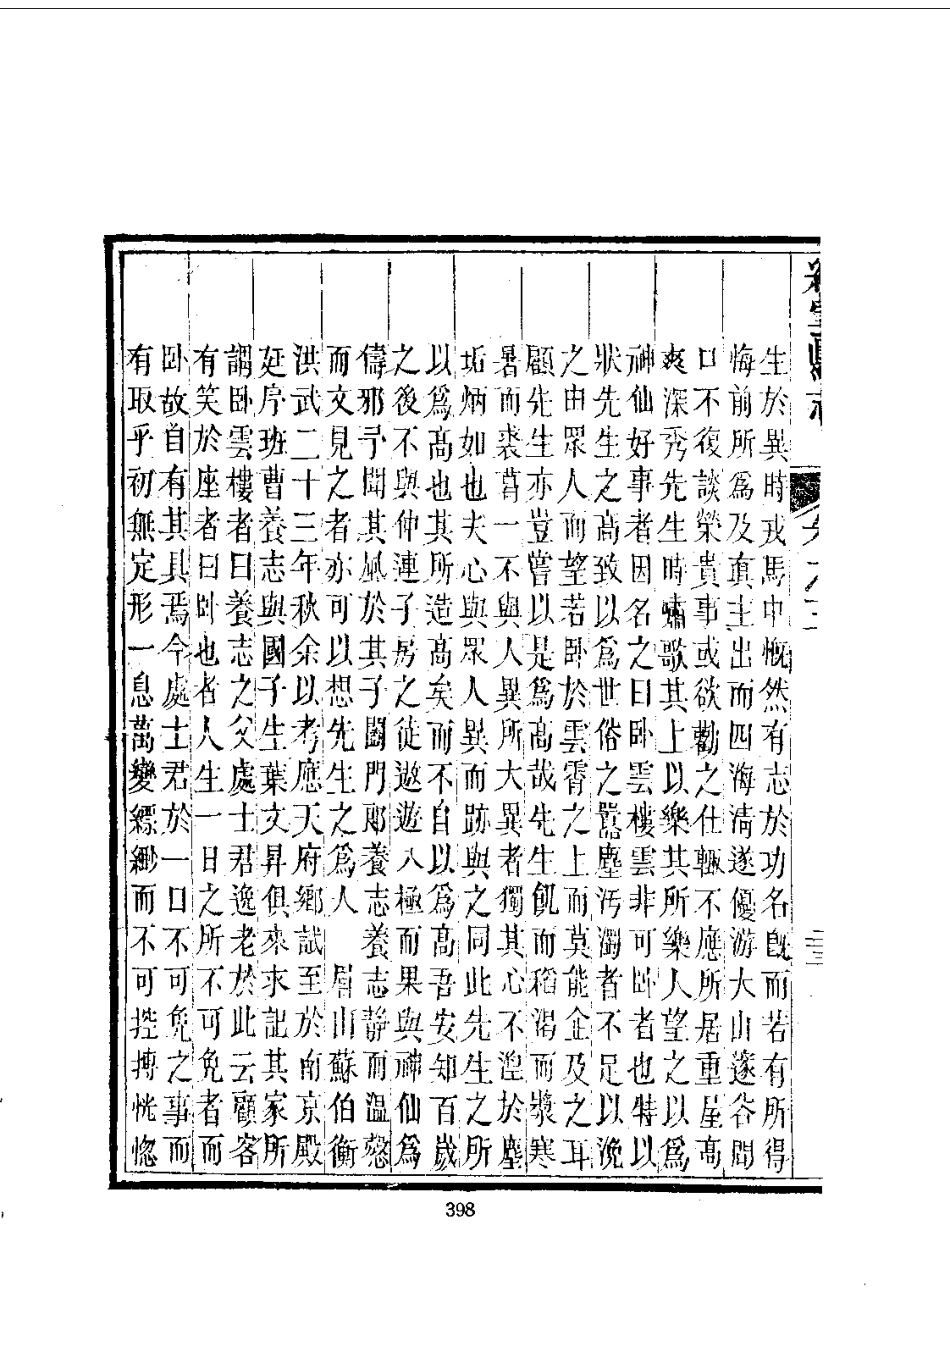 生於異時戎馬中慨然有志於功名旣而若有所得
悔前所爲及真主出而四海清遂優游大山邃谷間
口不復談榮貴事或欲勸之仕輒不應所居重屋高
爽深秀先生時嘯歌其上以樂其所樂人望之以爲
神仙好事者因名之曰卧雲樓雲非可卧者也特以
狀先生之高致以爲世俗之囂塵汚濁者不足以浼
之由眾人而望若卧於雲霄之上而莫能企及之耳
顧先生亦豈嘗以是爲高哉先生飢而稻渴而漿寒
暑而裘葛一不與人異所大異者獨其心不淫於塵
垢炳如也夫心與眾人異而跡與之同此先生之所
以爲高也其所造高矣而不自以爲高吾安知百歲
之後不與仲連子房之徒遨遊八極而果與神仙爲
儔邪予聞其風於其子闢門郎養志養志靜而溫慤
而文見之者亦可以想先生之爲人 眉山蘇伯衡
洪武二十三年秋余以考應天府鄉試至於南京殿
廷序班曹養志與國子生葉文昇俱來求記其家所
謂卧雲樓者曰養志之父處士君逸老於此云顧客
有笑於座者曰卧也者人生一日之所不可免者而
卧故自有其具焉今處士君於一口不可免之事而
有取乎初無定形一息萬變縹緲而不可控搏恍惚
398